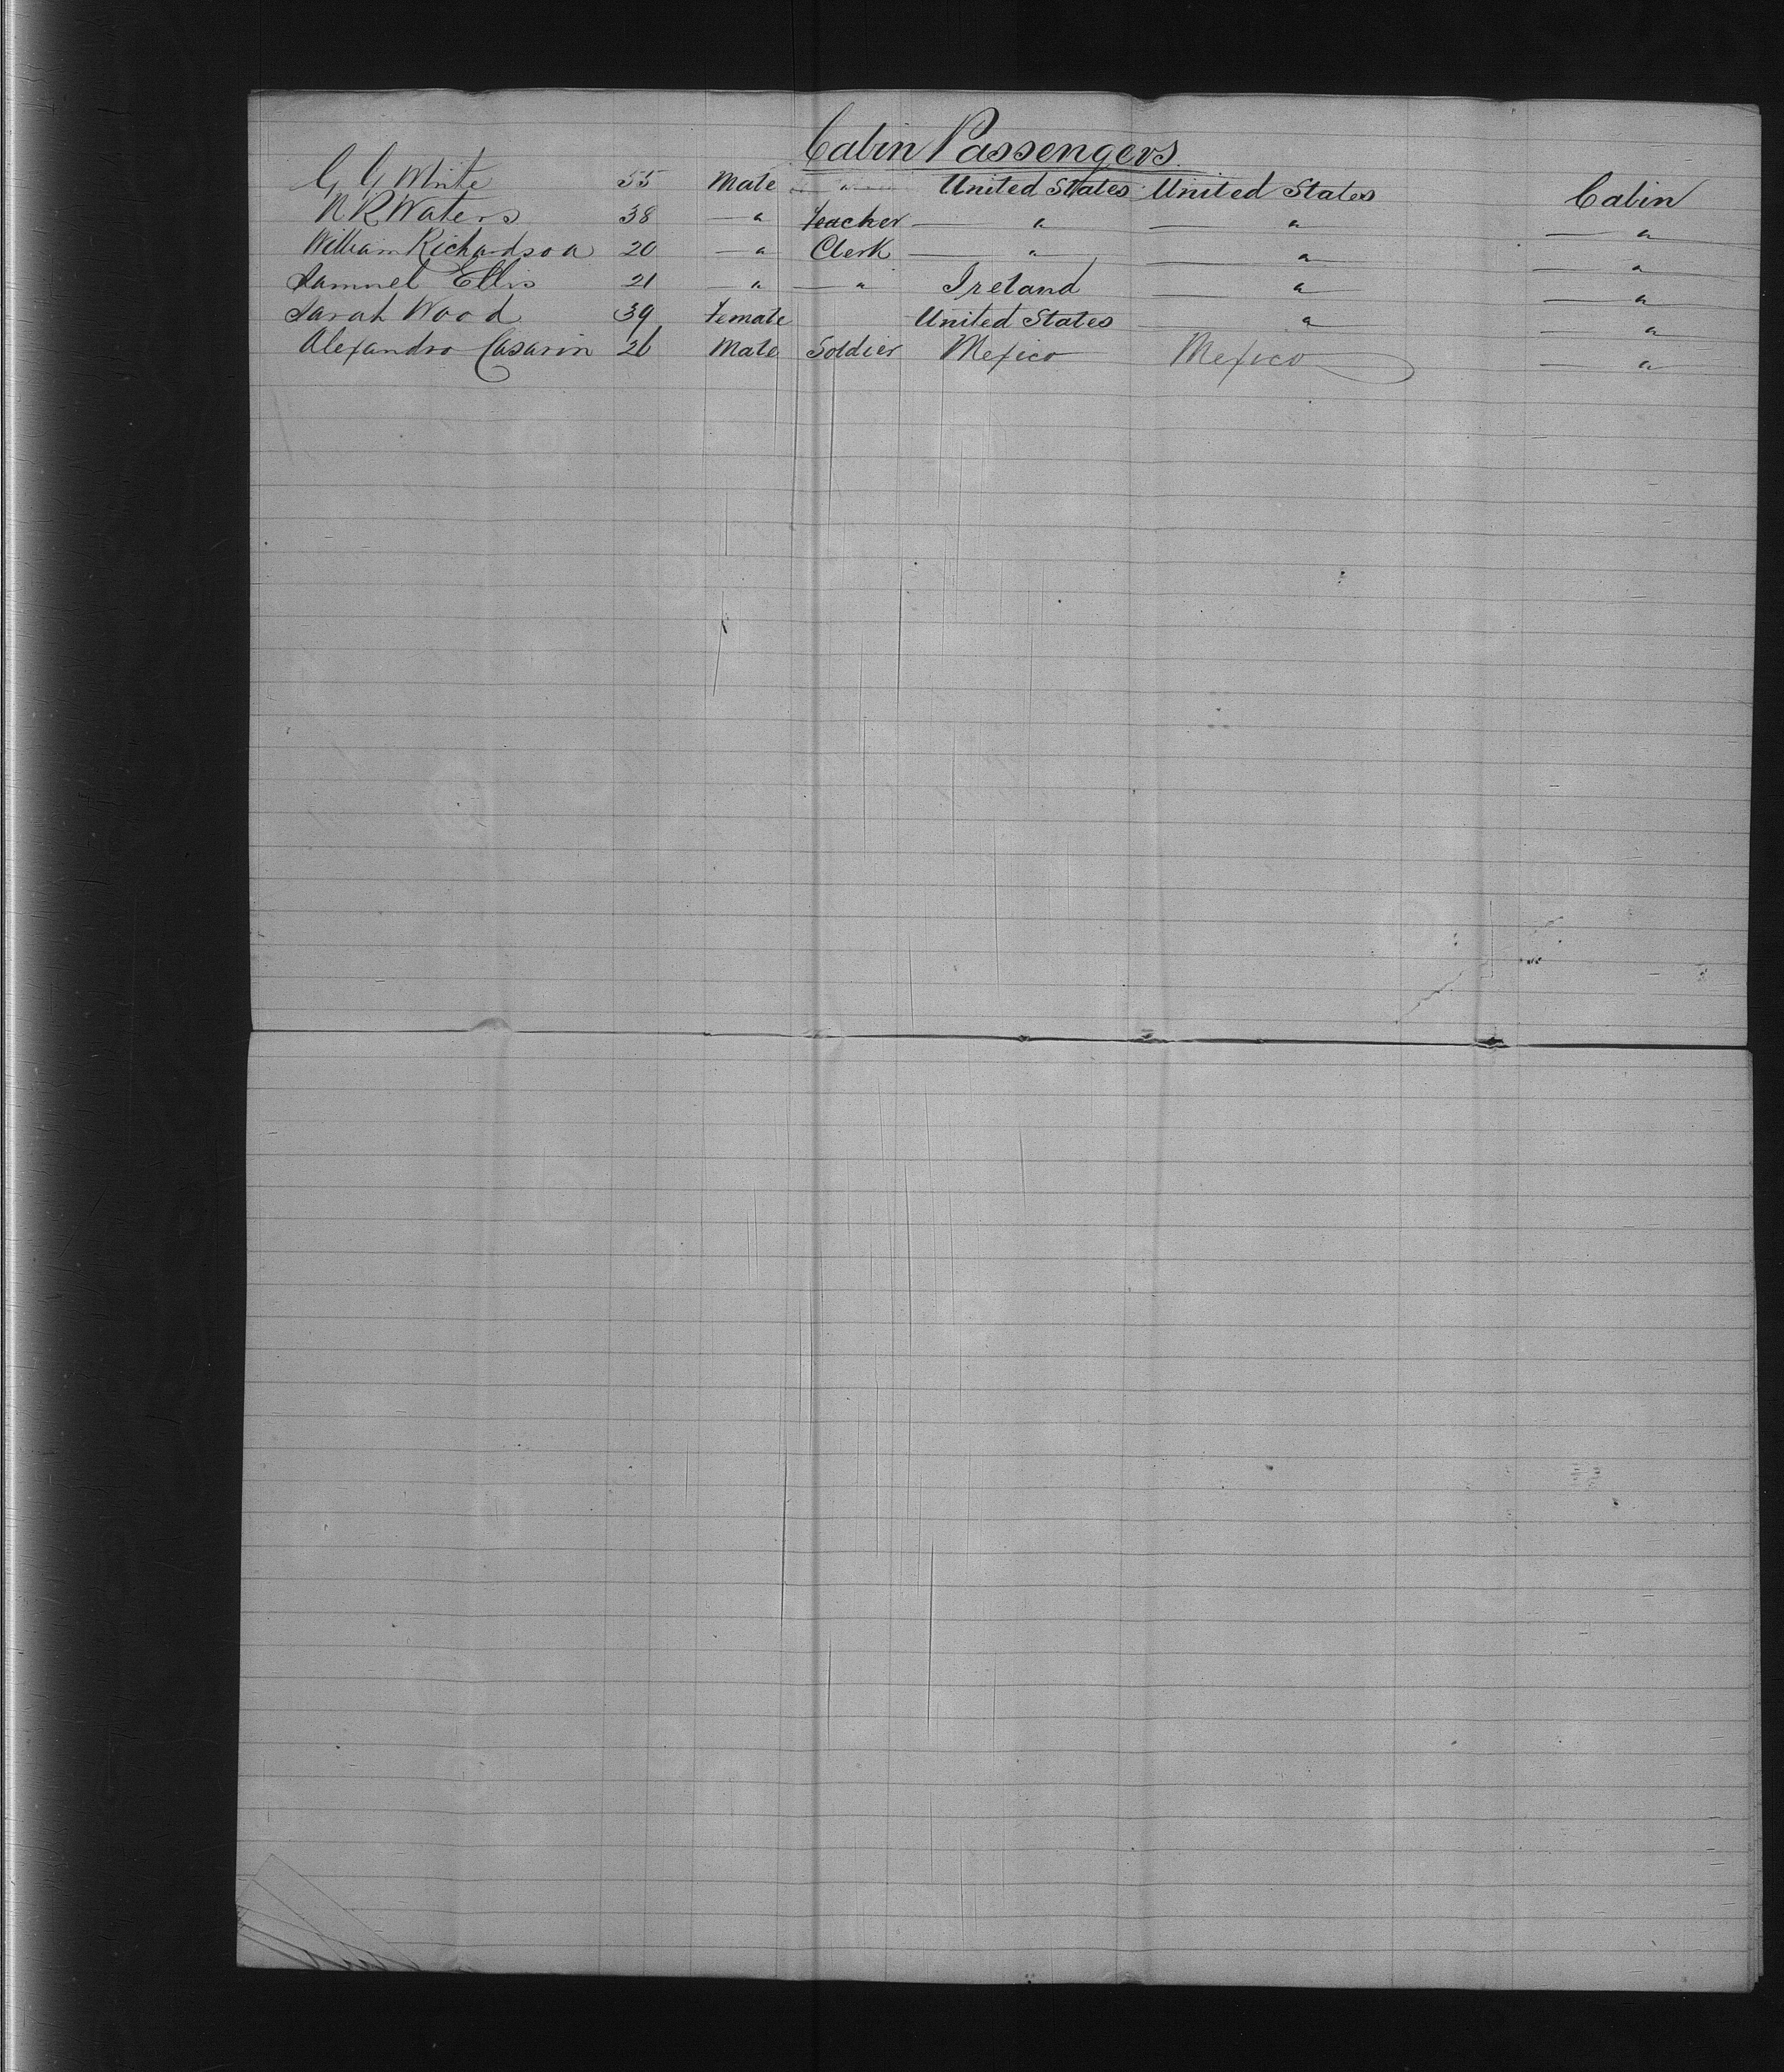 Cabin Passengers
G G White 55 Male — " — United States United States Cabin
N R Waters 38 — " Teacher — " — — " — — " —
William Richardson 20 — " Clerk — " — — " — — " —
Samuel Ellis 21 — " — " Ireland — " — — " —
Sarah Wood 39 Female United States — " — — " —
Alexandro Casarin 26 Male Soldier Mexico Mexico — " —